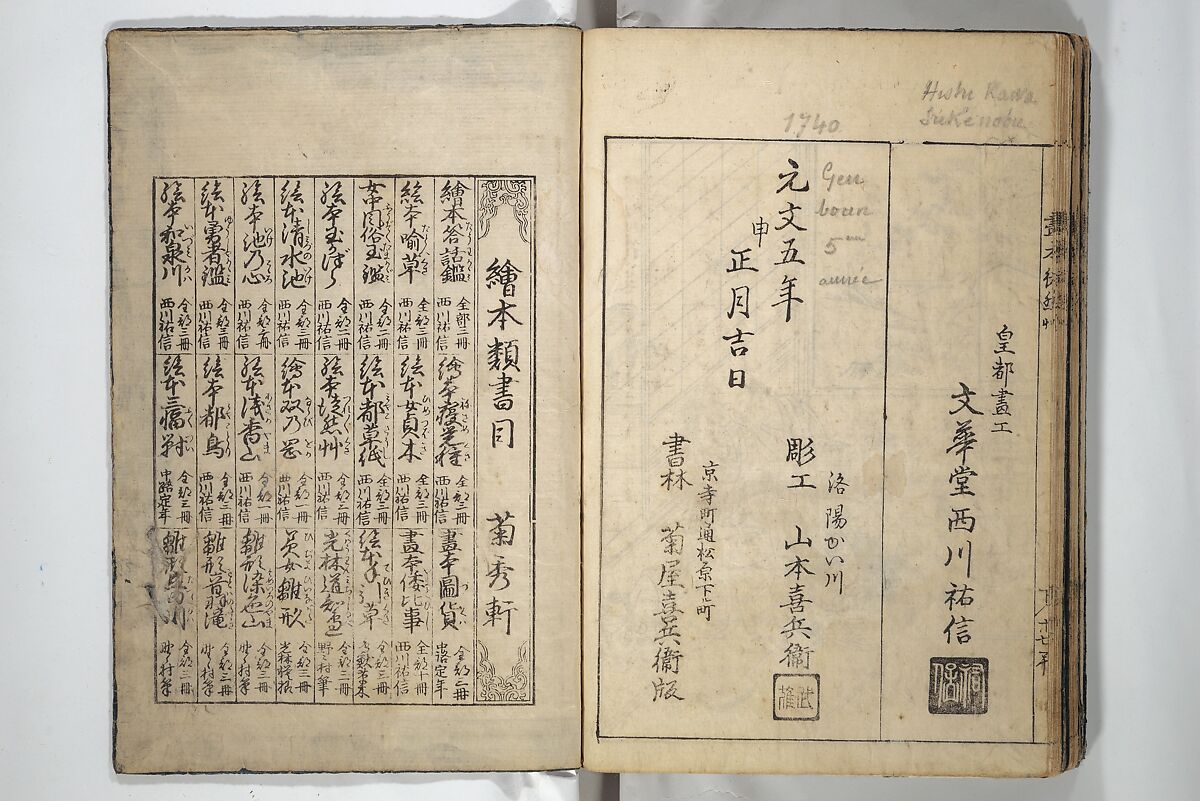 Hishi Kawa
Sukenobu
1740
Gen
boun
5me
année
皇都畫工
文華堂西川祐信
祐信
元文五年
申
正月吉日
洛陽かい川
彫工 山本喜兵衞
京寺町通松原下ル町
書林 菊屋喜兵衞版
繪本類書目 菊秀軒
繪本答話鑑 全部三冊 西川祐信
繪本寝覚種 全部三冊 西川祐信
畫本圖貨 全部二冊
絵本喩草 全部三冊 西川祐信
絵本女貞木 全部三冊 西川祐信
畫本倭比事 全部十冊 西川祐信
女中風俗玉鑑 全部二冊 西川祐信
絵本都草紙 全部三冊 西川祐信
絵本手引草
絵本玉かづら 全部二冊 西川祐信
絵本徒然艸 全部三冊 西川祐信
光林道知邊 全部三冊 野々村筆
絵本清水池 全部三冊 西川祐信
繪本双乃岡 全部一冊 西川祐信
美女雛形 全部三冊
絵本池乃心 全部三冊 西川祐信
絵本浅香山 全部一冊 西川祐信
雛形染色山 全部三冊 野々村筆
絵本勇者鑑 全部三冊 西川祐信
絵本都鳥 全部三冊 西川祐信
雛形音羽滝 全部三冊 野々村筆
絵本和泉川 全部三冊 西川祐信
絵本三福對 全部三冊 中路定年
全部三冊 野々村筆